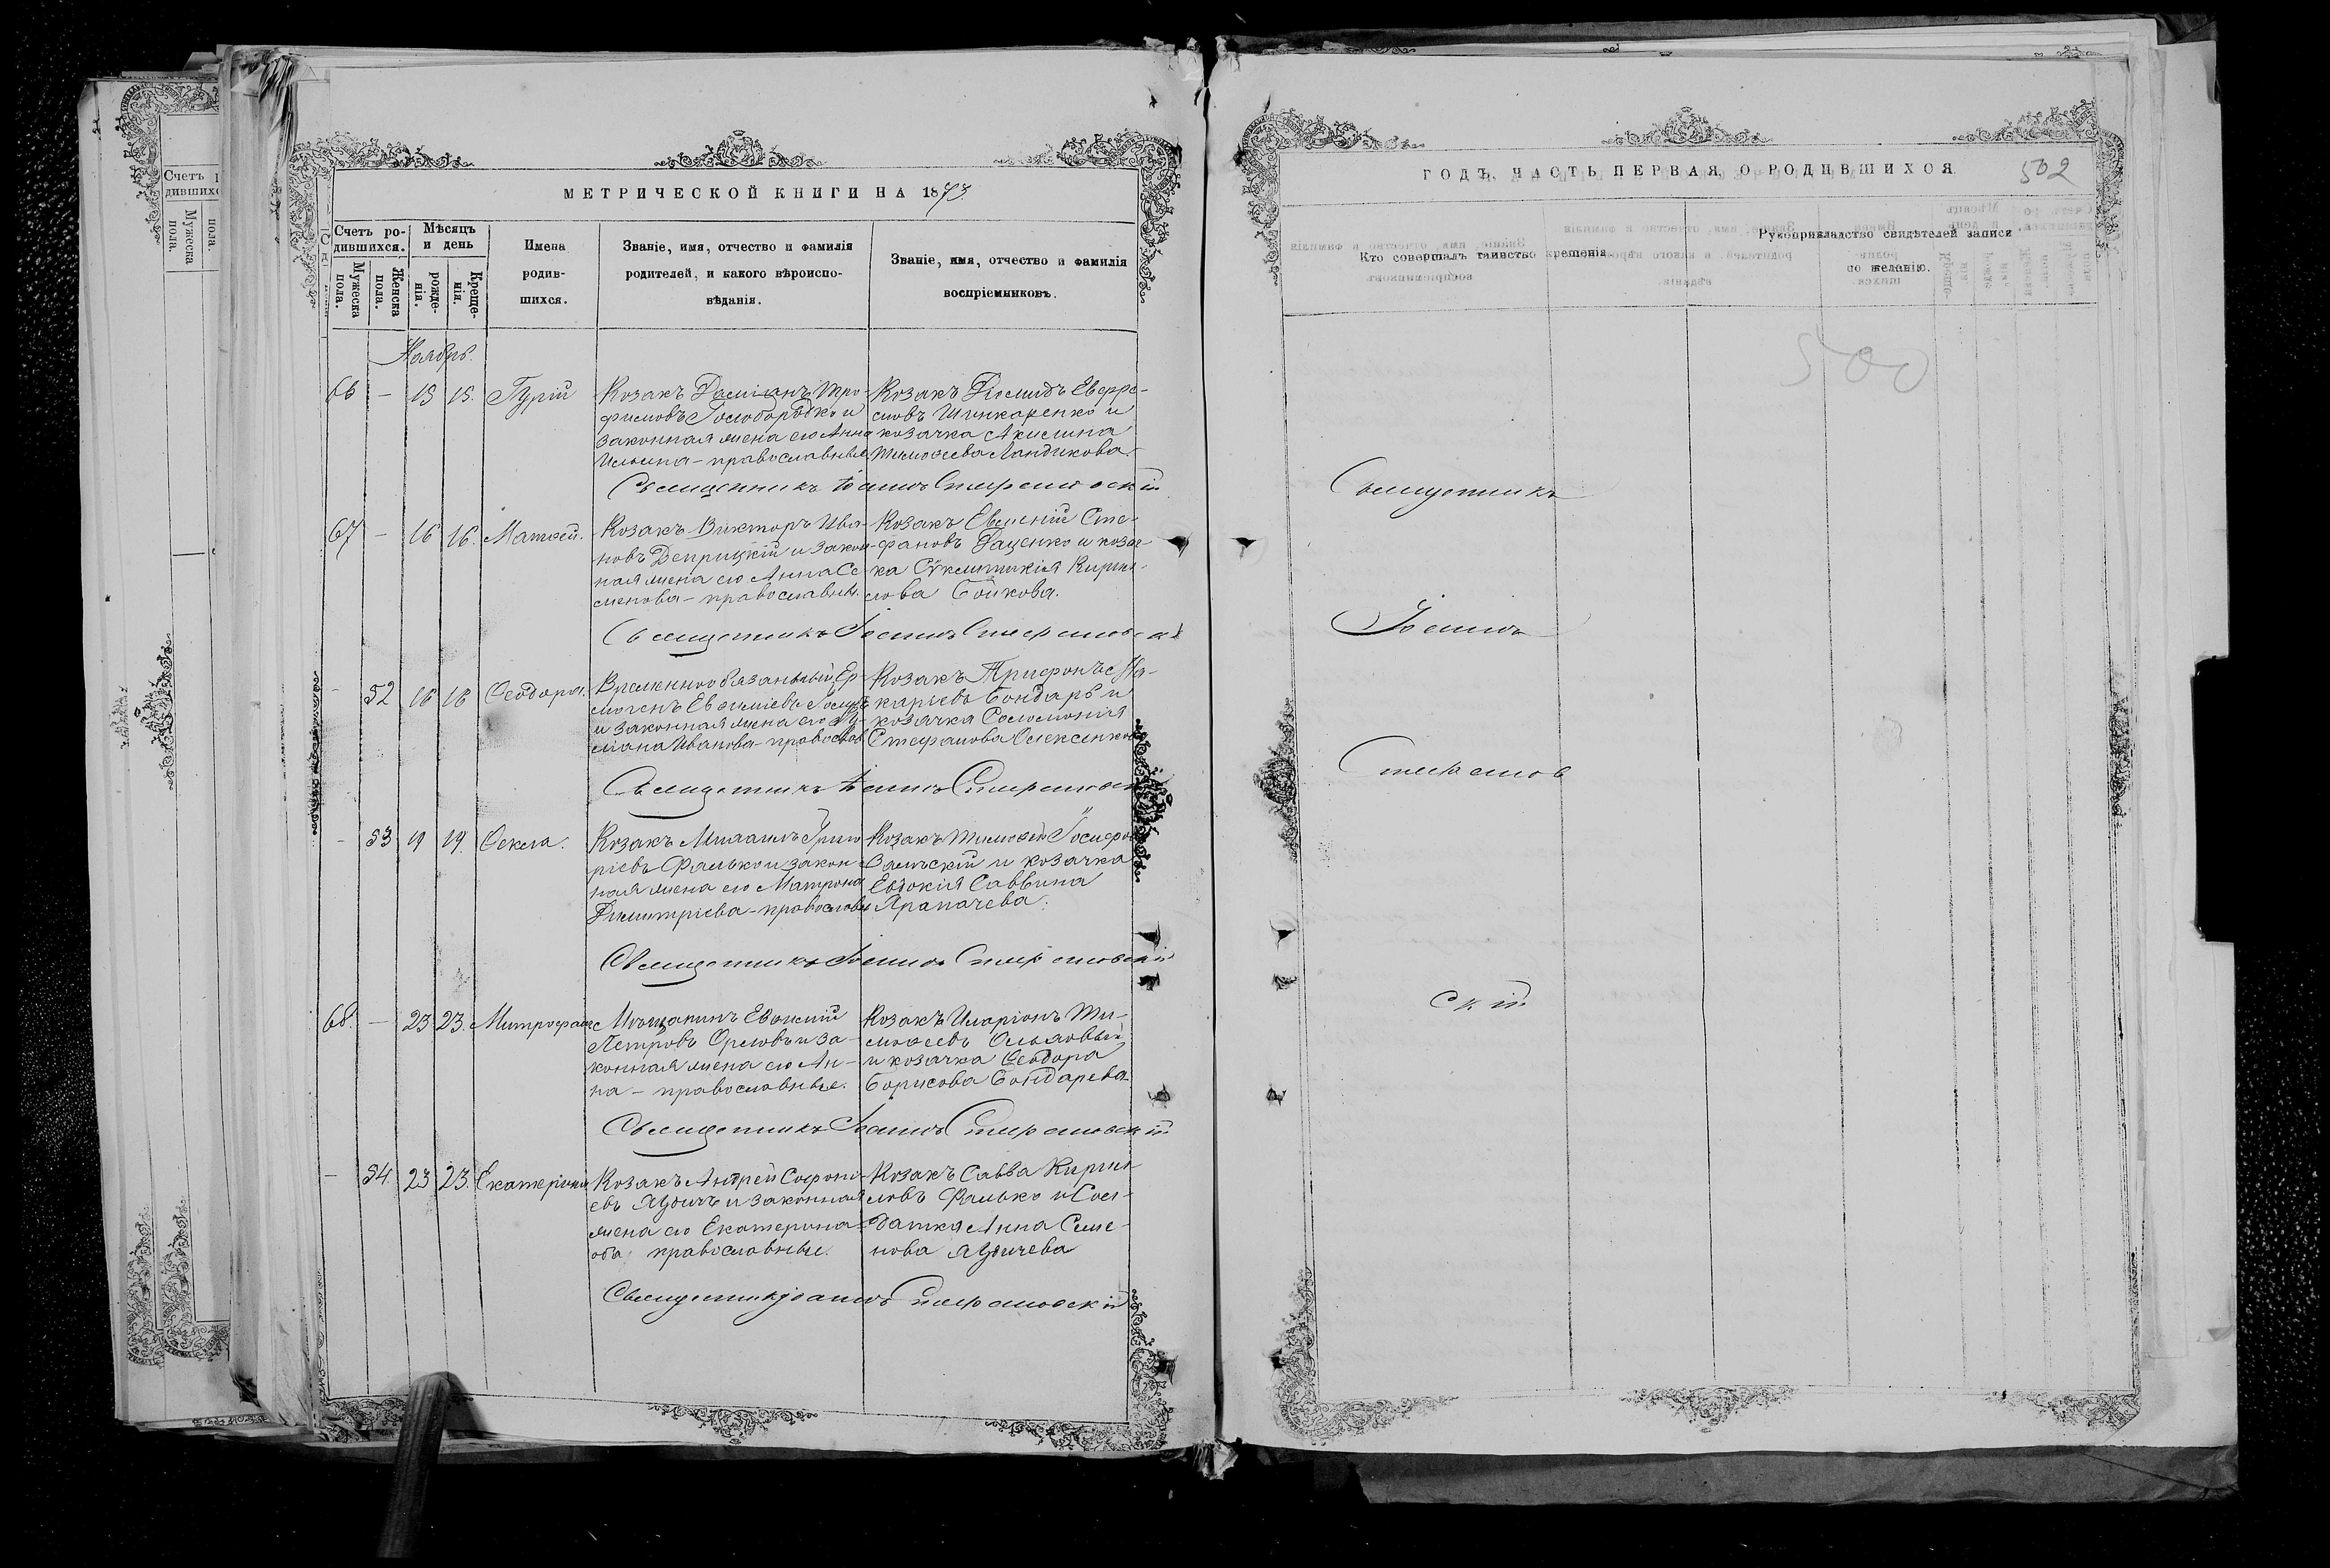 МЕТРИЧЕСКОЙ КНИГИ НА 1873.
Счетъ ро-
дившихся.
Мужеска пола.
Женска пола.
Мѣсяцъ и день
рожде-
нія.
Креще-
нія.
Имена
родив-
шихся.
Званіе, имя, отчество и фамилія
родителей, и какого вѣроиспо-
вѣданія.
Званіе, имя, отчество и фамилія
воспріемниковъ.
Ноябрь.
66 – 15 15. Гурій
Козакъ Даміанъ Тро-
фимовъ Голобородко и
законная жена его Анна
Ильина – православные
Козакъ Діомидъ Евфре-
мовъ Шинкаренко и
козачка Акилина
Тимоѳеева Ландикова.
Священникъ Іоаннъ Стефановскій
67 – 16 16. Матѳей.
Козакъ Викторъ Ива-
новъ Деприцкій и закон-
ная жена его Анна Се-
менова – православны.
Козакъ Евгеній Сте-
фановъ Даценко и козач-
ка Сѵнклитикія Кирил-
лова Бойкова.
Священникъ Іоаннъ Стефановскі
– 52 16 16 Ѳеодора.
Временнообязанный Ер-
могенъ Евѳиміевъ
и законная жена его
Иванова – православ
Козакъ Трифонъ Ма-
каріевъ Бондарь и
козачка Соломонія
Стефанова Олексенков
Священникъ Іоаннъ Стефановск
– 53 19 19. Ѳекла.
Козакъ Михаилъ Григо
ріевъ Фалько и закон
ная жена его Матрона
Димитріева – православн
Козакъ Тимоѳей Іосифов
Зальскій и козачка
Евдокія Саввина
Арапачева.
Священникъ Іоаннъ Стефановскій
68. – 23 23. Митрофанъ
Мѣщанинъ Евѳимій
Петровъ Орловъ и за-
конная жена его Ан-
на – православные.
Козакъ Иларіонъ Ти-
моѳеевъ Ольховый
и козачка Ѳеодора
Борисова Бондарева.
Священникъ Іоаннъ Стефановскій
– 54. 23 23. Екатерина
Козакъ Андрей Софоні-
евъ Яцричъ и законная
жена его Екатерина
оба православные.
Козакъ Савва Кирил-
ловъ Фалько и Сол-
датка Анна Семе-
нова Яцричева
Священникъ Іоаннъ Стефановскій
ГОДЪ, ЧАСТЬ ПЕРВАЯ, О РОДИВШИХСЯ.
502
Кто совершалъ таинство крещенія
Рукоприкладство свидѣтелей записи
по желанію.
500
Священникъ
Іоаннъ
Стефанов
скій
Счетъ
дившихс
Мужеска пола.
пола.